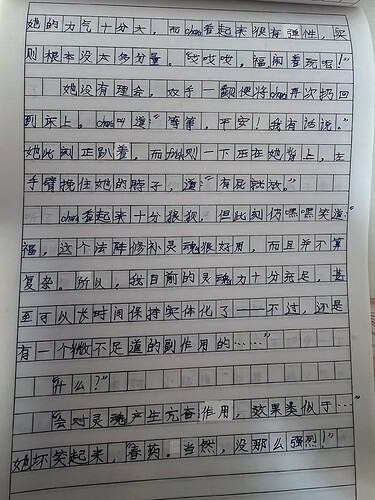 她的力气十分大，而chara看起来很有弹性，实
则根本没太多分量。“哎哎哎，福，闹着玩呢！”
她没有理会，双手一翻便将chara再次扔回
到床上。chara叫道：“等等，平安！我有话说。”
她此刻正趴着，而frisk则一下压在她背上，左
手臂挽住她的脖子，道：“有屁就放。”
chara看起来十分狼狈，但此刻仍嘿嘿笑道：
福，这个法阵修补灵魂很好用，而且并不算
复杂。所以，我目前的灵魂力十分充足，甚
至可以长时间保持实体化了——不过，还是
有一个微不足道的副作用的……”
“什么？”
“会对灵魂产生亢奋作用，效果类似于…
她坏笑起来，“春药。当然，没那么强烈！”